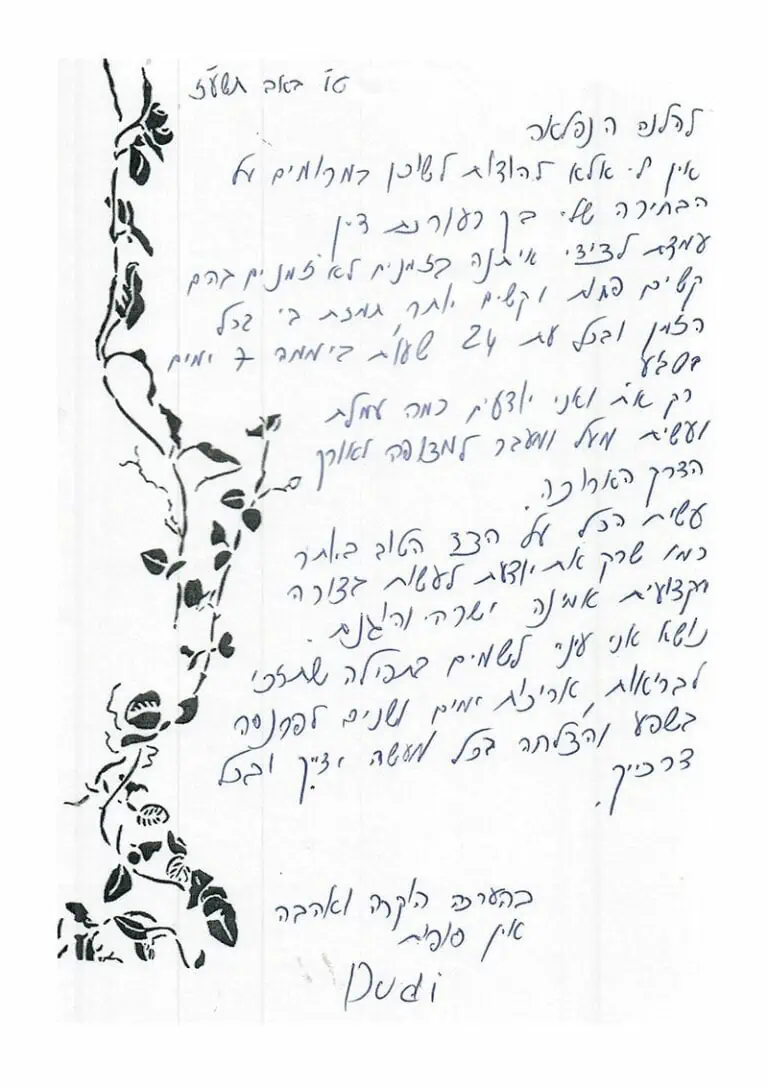 ט"ו באב תשע"ז
להלנה הנפלאה
אין לי אלא להודות לשוכן במרומים על
הבחירה שלי בך כעורכת דין
עמדת לצידי איתנה בזמנים לא זמנים בהם
קשים פחות וקשים יותר, תמכת בי בכל
הזמן ובכל עת 24 שעות ביממה 7 ימים
בשבוע
רק את ואני יודעים כמה עמלת
ועשית מעל ומעבר למצופה לאורך
הדרך הארוכה.
עשית הכל על הצד הטוב ביותר
כמו שרק את יודעת לעשות בצורה
מקצועית אמינה ישרה והוגנת.
נושא אני עיניי לשמים בתפילה שתזכי
לבריאות, אריכות ימים ושנים לפרנסה
בשפע והצלחה בכל מעשה ידייך ובכל
דרכייך.
בהערכה הוקרה ואהבה
אין סופית
Dudi